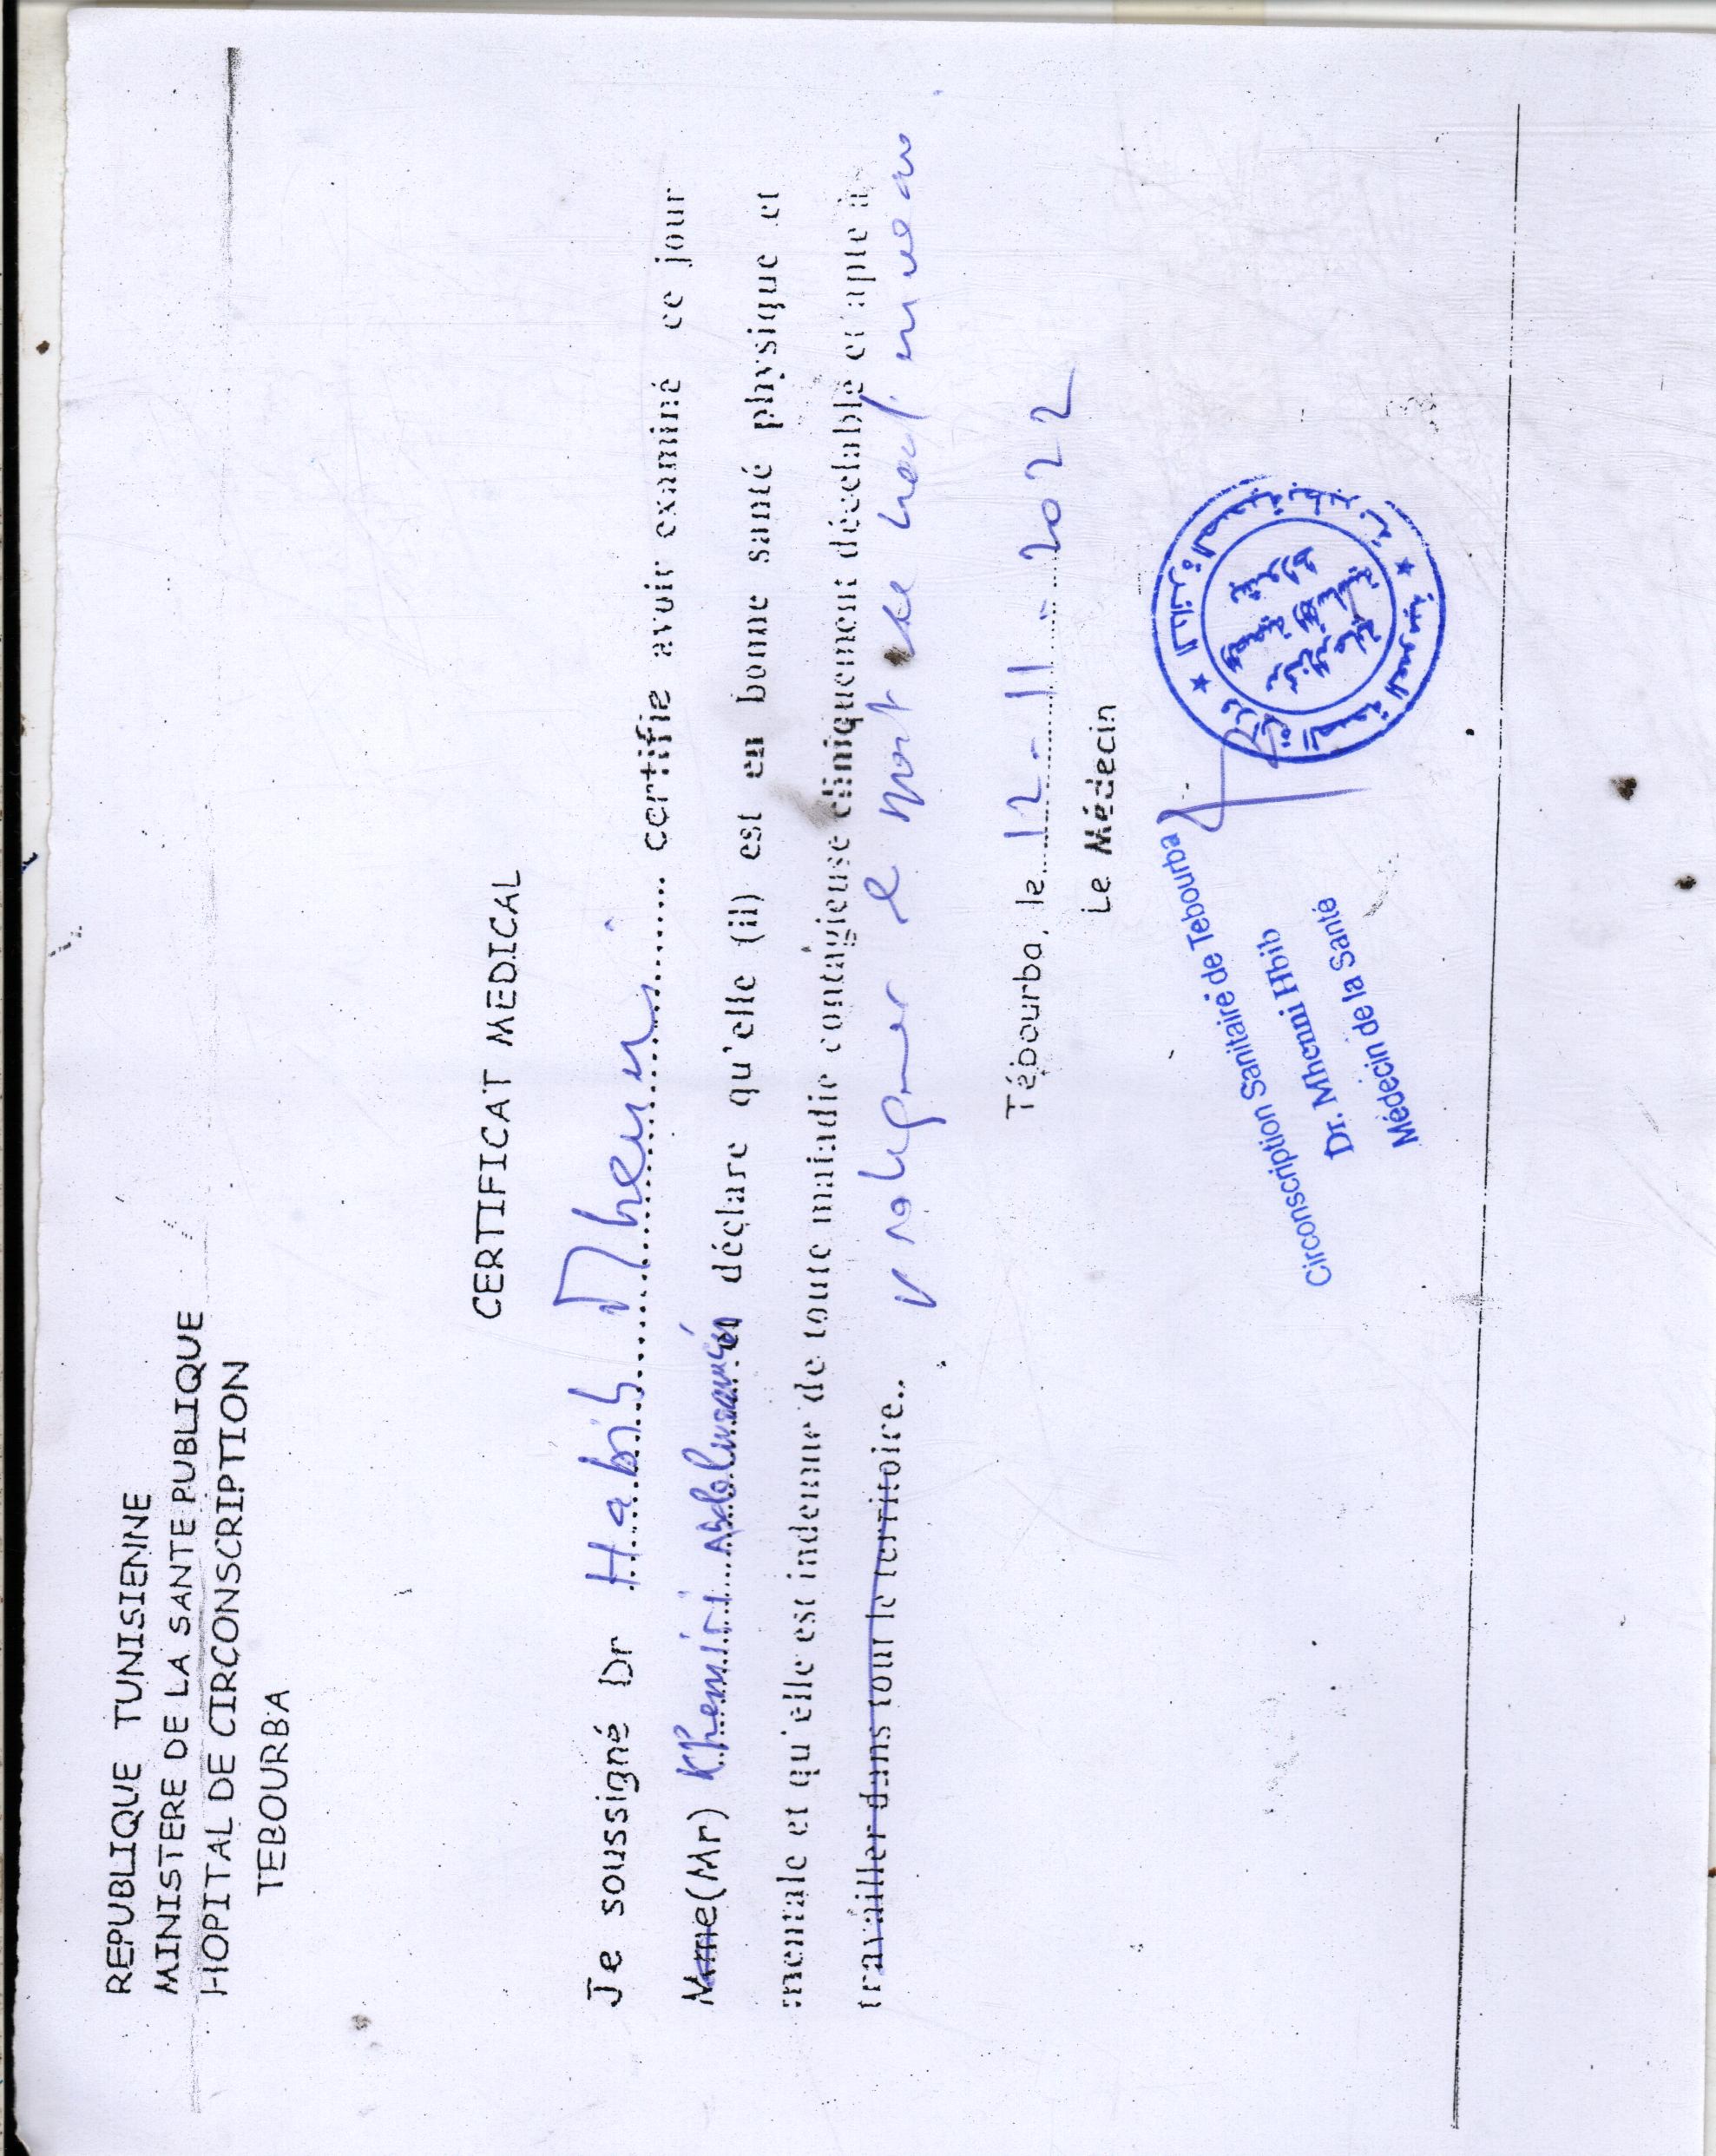 REPUBLIQUE TUNISIENNE
MINISTERE DE LA SANTE PUBLIQUE
HOPITAL DE CIRCONSCRIPTION
TEBOURBA
CERTIFICAT MEDICAL
Je soussigné Dr Habib Mhemni certifie avoir examiné ce jour
Mme(Mr) Khemiri et déclare qu'elle (il) est en bonne santé physique et
mentale et qu'elle est indemne de toute maladie contagieuse cliniquement décelable et apte à
travailler dans tout le territoire..
pratiquer le sport de haut niveau
Tébourba, le 12-11-2022
Le Médecin
Circonscription Sanitaire de Tebourba
Dr. Mhemni Hbib
Médecin de la Santé
وزارة الصحة العمومية
الدائرة الصحية بطبربة